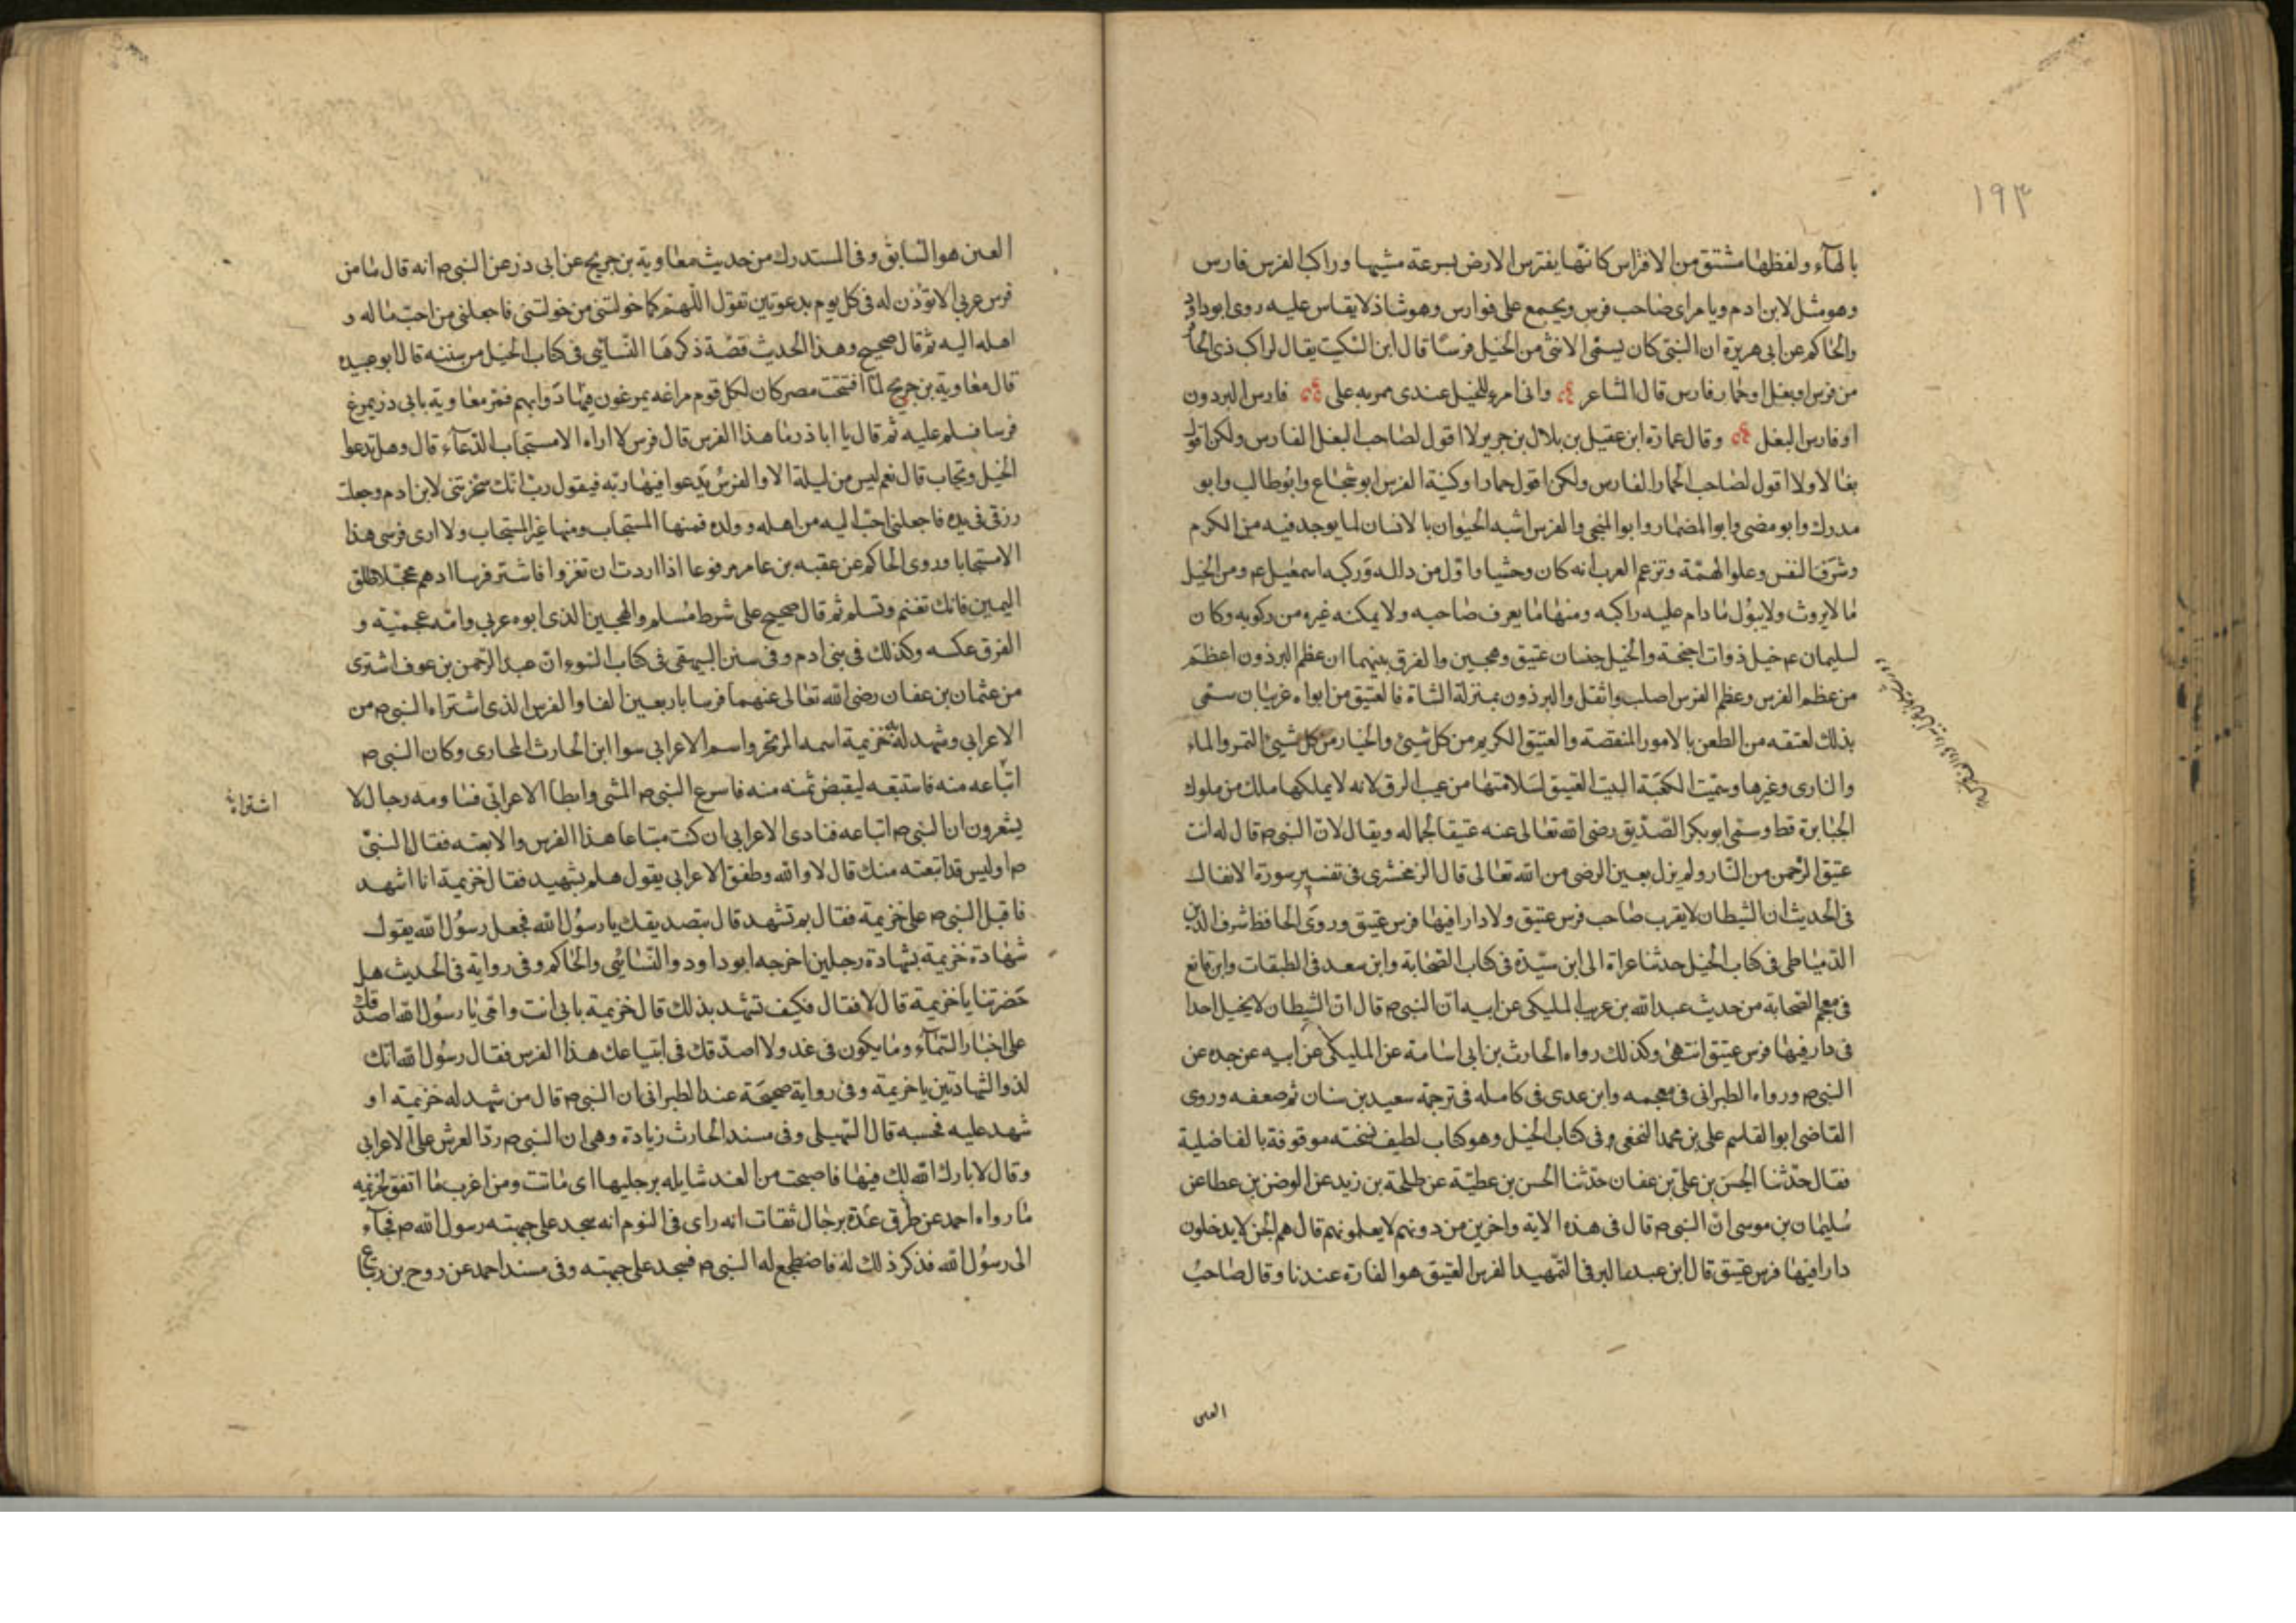 ١٩٣
بالهآء ولفظها مشتق من الافتراس كانها يفترس الارض بسرعة مشيها وراكب الفرس فارس
وهو مثل لابن ادم ويا مراى صاحب فرس ويجمع على فوارس وهو شاذ لا يقاس عليه روى ابو داود
والحاكم عن ابى هريرة ان النبى كان يسمى الانثى من الخيل فرسا قال ابن السكيت يقال لراكب ذى الحافر
من فرس او بغل او حمار فارس قال الشاعر وانى امرء للخيل عندى مربه على فارس البردون
او فارس البغل وقال عمارة ابن عقيل بن بلال بن جرير لا اقول لصاحب البغل الفارس ولكن اقول
بغالا ولا اقول لصاحب الحمار الفارس ولكن اقول حمارا وكنية الفرس ابو شجاع وابو طالب وابو
مدرك وابو مضى وابو المضمار وابو المنجى والفرس اشبه الحيوان بالانسان لما يوجد فيه من الكرم
وشرف النفس وعلو الهمة وتزعم العرب انه كان وحشيا واول من ذاله وركبه اسمعيل عم ومن الخيل
ما لا يروث ولا يبول ما دام عليه راكبه ومنها ما يعرف صاحبه ولا يمكنه غيره من ركوبه وكان
لسليمان عم خيل ذوات اجنحة والخيل جنسان عتيق وهجين والفرق بينهما ان عظم البرذون اعظم
من عظم الفرس وعظم الفرس اصلب واثقل والبرذون بمنزلة الشاة فالعتيق من ابواه عربيان سمى
بذلك لعتقه من الطعن بالامور المنقصة والعتيق الكريم من كل شيئ والخيار من كل شيئ التمر والماء
والنارى وغيرها وسميت الكعبة البيت العتيق لسلامتها من عيب الرق لانه لا يملكها ملك من ملوك
الجبابرة قط وسمى ابو بكر الصديق رضى الله تعالى عنه عتيقا لجماله ويقال لان النبى ص قال له انت
عتيق الرحمن من النار ولم يزل بعين الرضى من الله تعالى قال الزمخشرى فى تفسير سورة الانفال
فى الحديث ان الشيطان لا يقرب صاحب فرس عتيق ولا دارا فيها فرس عتيق وروى الحافظ شرف الدين
الدمياطى فى كتاب الخيل حدثنا عزاة الى ابن سيدة فى كتاب الصحابة وابن سعد فى الطبقات وابن قانع
فى معجم الصحابة من حديث عبد الله بن عريب المليكى عن ابيه ان النبى ص قال ان الشيطان لا يخبل احدا
فى دار فيها فرس عتيق انتهى وكذلك رواه الحارث بن ابى اسامة عن المليكى عن ابيه عن جده عن
النبى ص ورواه الطبرانى فى معجمه وابن عدى فى كامله فى ترجمة سعيد بن سنان ثم ضعفه وروى
القاضى ابو القاسم على بن محمد النخعى وفى كتاب الخيل وهو كتاب لطيف نسخته موقوفة بالفاضلية
فقال حدثنا الحسن بن على بن عفان حدثنا الحسن بن عطية عن طلحة بن زيد عن الوضن بن عطا عن
سليمان بن موسى ان النبى ص قال فى هذه الاية واخرين من دونهم لا يعلمونهم قال هم الجن لا يدخلون
دارا فيها فرس عتيق قال ابن عبد البر فى التمهيد الفرس العتيق هو الفارة عندنا وقال صاحب
العين
العين هو السابق وفى المستدرك من حديث معاوية بن جريج عن ابى ذر عن النبى ص انه قال ما من
فرس عربى الا توذن له فى كل يوم بدعوتين تقول اللهم كما خولتنى من خولتنى فاجعلنى من احب ماله و
اهله اليه ثم قال صحيح وهذا الحديث قصة ذكرها النسائى فى كتاب الخيل من سننه قال ابو عبيده
قال معاوية بن جريج لما افتتحت مصر كان لكل قوم مراغه يمرغون فيها دوابهم فمر معاوية بابى ذر يمرغ
فرسا فسلم عليه ثم قال يا ابا ذر ما هذا الفرس قال فرس لا اراه الا مستجاب الدعآء قال وهل تدعوا
الخيل وتجاب قال نعم ليس من ليلة الا والفرس يدعوا فيها ربه فيقول رب انك سخرتنى لابن ادم وجعلت
رزقى فى يده فاجعلنى احب اليه من اهله وولده فمنها المستجاب ومنها غير المستجاب ولا ارى فرسى هذا
الا مستجابا وروى الحاكم عن عقبه بن عامر مرفوعا اذا اردت ان تغزوا فاشتر فرسا ادهم محجلا طلق
اليمين فانك تغنم وتسلم ثم قال صحيح على شرط مسلم والهجين الذى ابوه عربى وامه عجمية و
الفرق عكسه وكذلك فى بنى ادم وفى سنن البيهقى فى كتاب البيوع ان عبد الرحمن بن عوف اشترى
من عثمان بن عفان رضى الله تعالى عنهما فرسا باربعين الفا والفرس الذى اشتراه النبى ص من
الاعرابى وشهد له به خزيمة اسمه المرتجز واسم الاعرابى سوا ابن الحارث المحارى وكان النبى ص
اتباعه منه فاستتبعه ليقبض ثمنه منه فاسرع النبى ص المشى وابطا الاعرابى فساومه رجال لا
اشتراه
يشعرون ان النبى ص اتباعه فنادى الاعرابى ان كنت مبتاعا هذا الفرس والا بعته فقال النبى
ص اوليس قد ابتعته منك قال لا والله وطفق الاعرابى يقول هلم بشهيد فقال خزيمة انا اشهد
فاقبل النبى ص على خزيمة فقال بم تشهد قال بتصديقك يا رسول الله فجعل رسول الله يقول
شهادة خزيمة بشهادة رجلين اخرجه ابو داود والنسائى والحاكم وفى رواية فى الحديث هل
حضرتنا يا خزيمة قال لا فقال فكيف تشهد بذلك قال خزيمة بابى انت وامى يا رسول الله اصدقك
على اخبار السمآء وما يكون فى غد ولا اصدقك فى ابتياعك هذا الفرس فقال رسول الله انك
لذو الشهادتين يا خزيمة وفى رواية صحيحة عند الطبرانى ان النبى ص قال من شهد له خزيمة او
شهد عليه فحسبه قال السهيلى وفى مسند الحارث زيادة وهى ان النبى ص رد الفرس على الاعرابى
وقال لا بارك الله لك فيها فاصبحت من الغد شايله برجليها اى ماتت ومن اغرب ما اتفق لخزيمه
ما رواه احمد عن طرق عدة برجال ثقات انه راى فى النوم انه سجد على جبهته رسول الله ص فجآء
الى رسول الله فذكر ذلك له فاضطجع له النبى ص فسجد على جبهته وفى مسند احمد عن روح بن زنباع